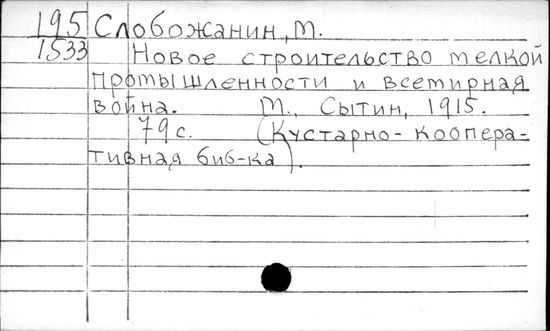 195 Слобожанин, М.
1533 Новое строительство мелкой
промышленности и всемирная
война. М., Сытин, 1915.
79 с. (Кустарно-коопера-
тивная биб-ка).